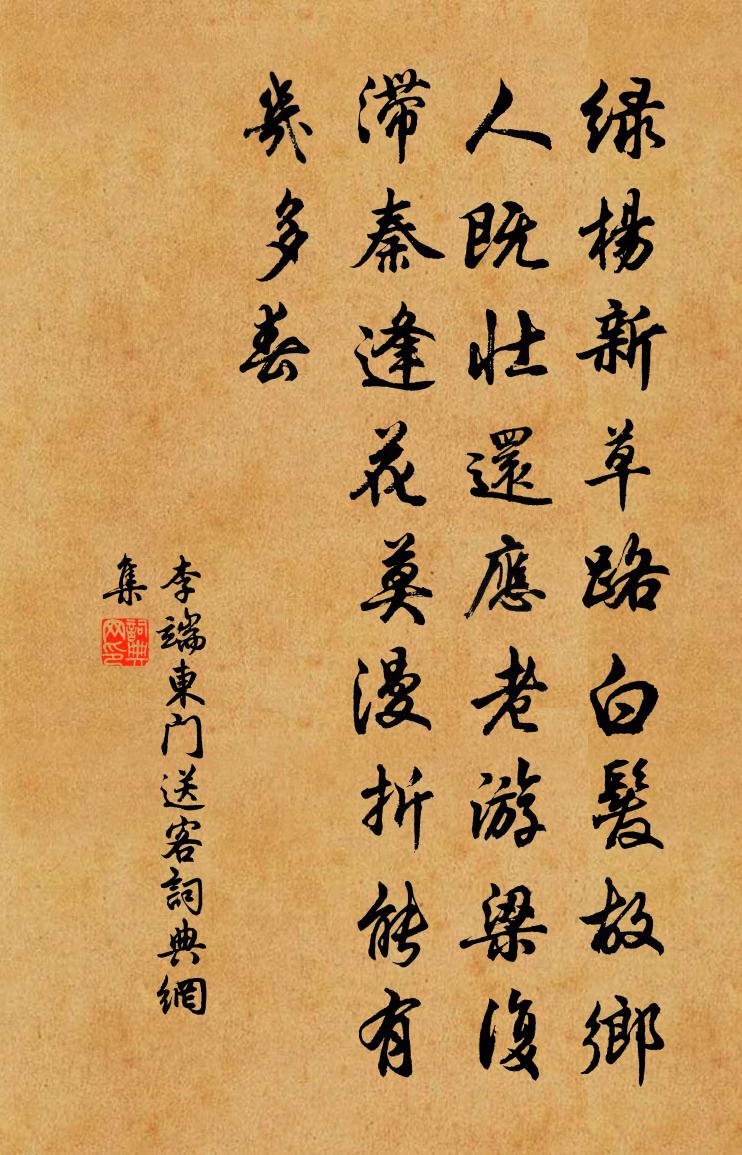 绿楊新草路白髮故鄉
人既壯還應老游梁復
滯秦逢花莫漫折能有
幾多春
李端東門送客詞典網
集
詞典
网印